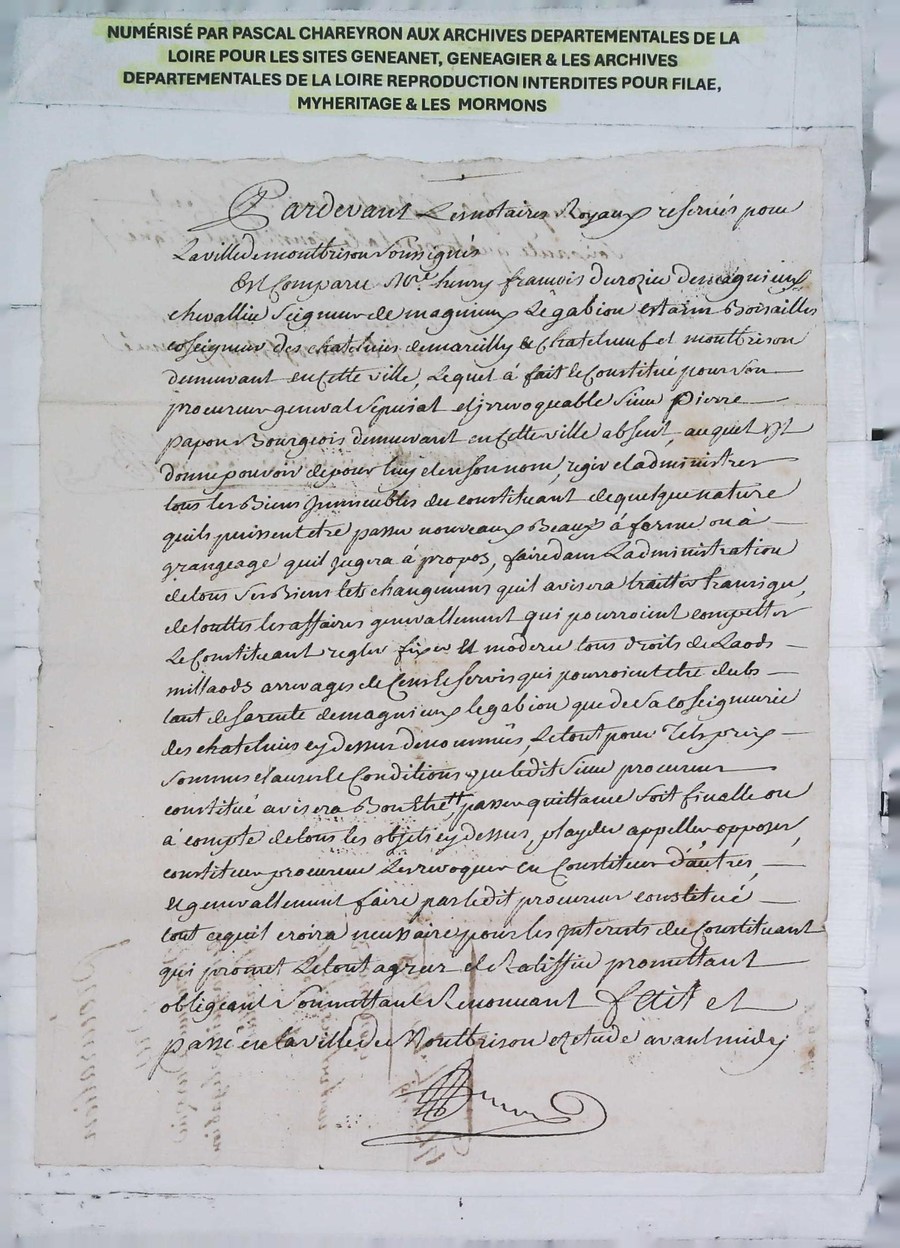 NUMÉRISÉ PAR PASCAL CHAREYRON AUX ARCHIVES DEPARTEMENTALES DE LA
LOIRE POUR LES SITES GENEANET, GENEAGIER & LES ARCHIVES
DEPARTEMENTALES DE LA LOIRE REPRODUCTION INTERDITES POUR FILAE,
MYHERITAGE & LES MORMONS
Pardevant Les notaires Royaux reservés pour
La ville de montbrison soussignés
Est Comparu Mre henry francois Durozier de magnieux
chevallier Seigneur de magnieux Le gabion Boisailles
coseigneur des chatelnies de marcilly & chatelneuf et montbrison
demeurant en cette ville, Lequel à fait & Constitué pour son
procureur general special et jrrevoquable sieur pierre
papon Bourgeois demeurant en cette ville absent, auquel Jl
donne pouvoir de pour luy et en son nom, regir et administrer
tous les Biens Jmmeubles du constituant de quelque nature
quils puissent etre passer nouveaux Beaux à ferme ou à
grangeage quil jugera à propos, faire dans L'administration
de tous ses Biens tels changemens quil avisera traitter transiger,
de touttes les affaires generallement qui pourroient competter
Le Constituant regler fixer et moderer tous droits de Laods
millaods arrerages de Cens & servis qui pourroient etre dubs
tant de sa rente de magnieux le gabion que de sa coseigneurie
des chatelnies cy dessus denommées, Le tout pour Tels prix
sommes clauses & Conditions que ledit sieur procureur
constitué avisera Bon Etre passer quittance soit finalle ou
à compte de tous les objets cy dessus, playder appeller, opposer,
constituer procureur Les revoquer en Constituer d'autres,
et generallement faire par ledit procureur constitué
tout ce quil croira necessaire pour les Jnterests du Constituant
qui promet Le tout agreer et Ratiffier promettant
obligeant soumettant Renonçant fait et
passé en la ville de Montbrison Etude avant midy